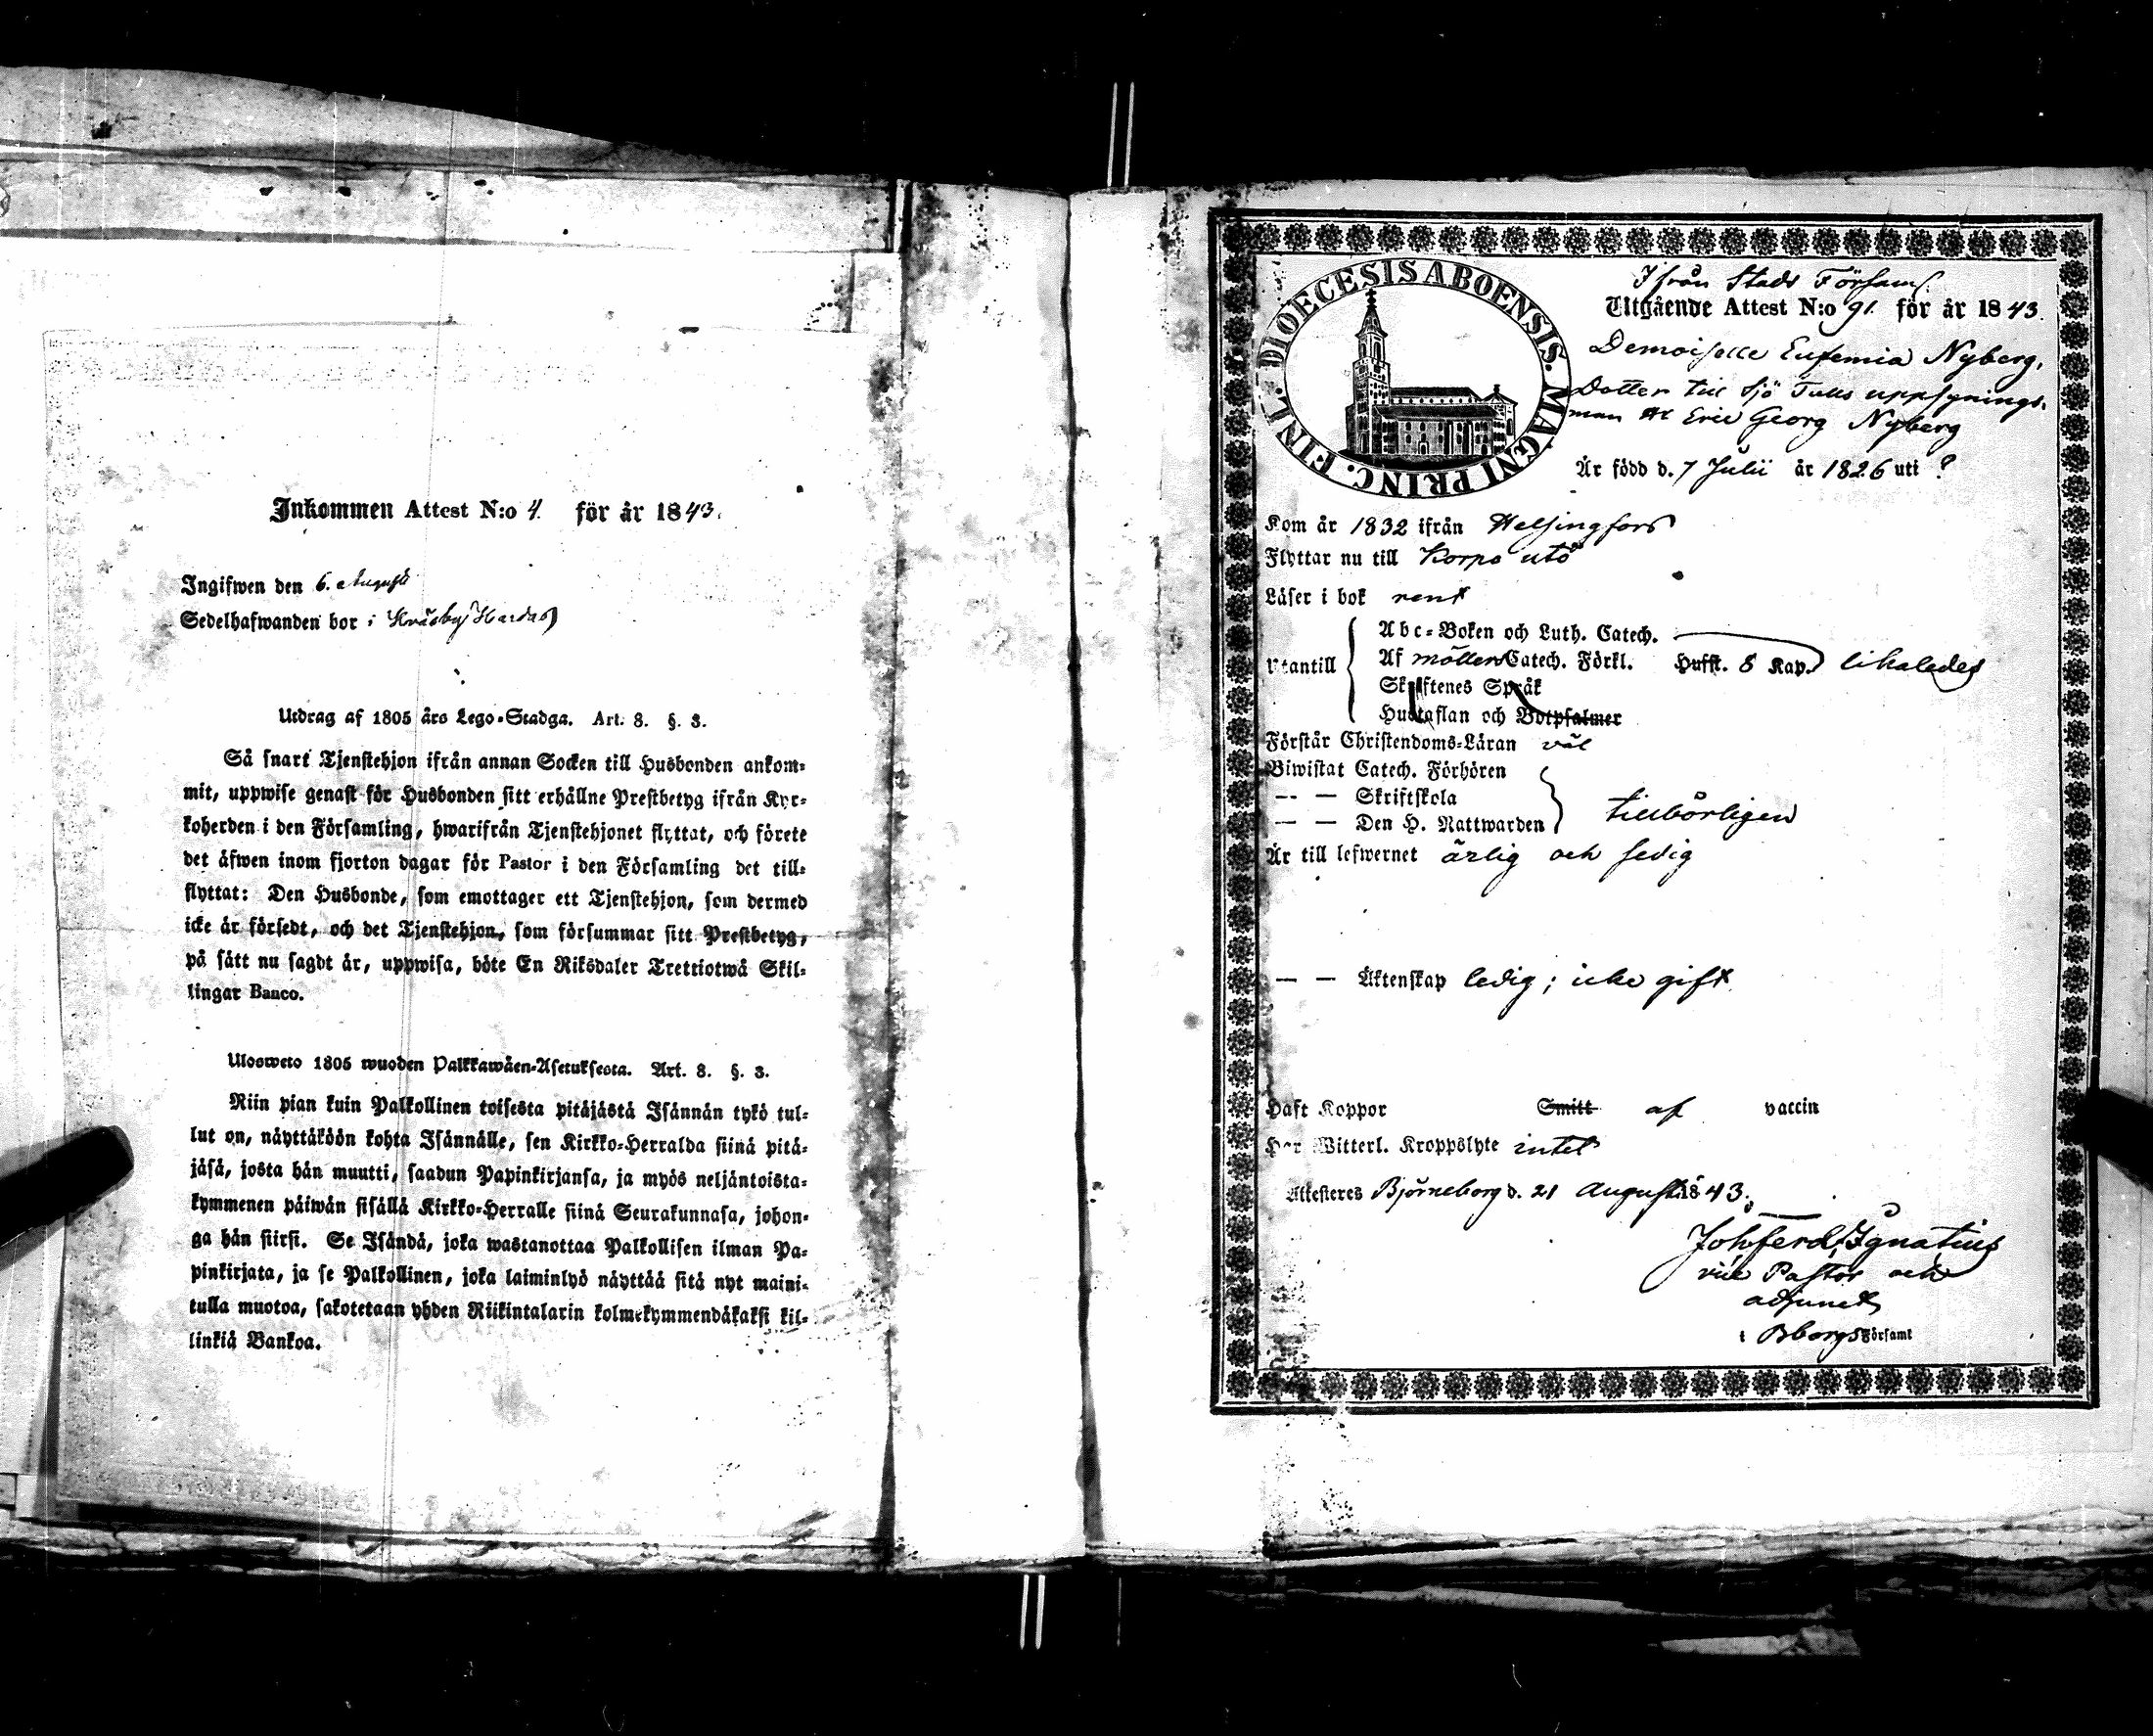 Inkommen Attest N:o 4. för år 1843.
Ingifwen den 6. Augusti
Sedelhafwanden bor i
Utdrag af 1805 års Lego-Stadga. Art. 8. §. 3.
Så snart Tjenstehjon ifrån annan Socken till Husbonden ankom-
mit, uppwise genast för Husbonden sitt erhållne Prestbetyg ifrån Kyr-
koherden i den Församling, hwarifrån Tjenstehjonet flyttat, och förete
det äfwen inom fjorton dagar för Pastor i den Församling det till-
flyttat: Den Husbonde, som emottager ett Tjenstehjon, som dermed
icke är försedt, och det Tjenstehjon, som försummar sitt Prestbetyg,
på sätt nu sagdt är, uppwisa, böte En Riksdaler Trettiotwå Skil-
lingar Banco.
Ulosweto 1805 wuoden Palkkawäen-Asetuksesta. Art. 8. §. 3.
Niin pian kuin Palkollinen toisesta pitäjästä Isännän tykö tul-
lut on, näyttäköön kohta Isännälle, sen Kirkko-Herralda siinä pitä-
jäsä, josta hän muutti, saadun Papinkirjansa, ja myös neljäntoista-
kymmenen päiwän sisällä Kirkko-Herralle siinä Seurakunnasa, johon-
ga hän siirsi. Se Isändä, joka wastanottaa Palkollisen ilman Pa-
pinkirjata, ja se Palkollinen, joka laiminlyö näyttää sitä nyt maini-
tulla muotoa, sakotetaan yhden Riikintalarin kolmekymmendäkaksi kil-
linkiä Bankoa.
DIOECESIS ABOENSIS. MAGNI PRINC. FINL.
Ifrån Stads Församl.
Utgående Attest N:o 91. för år 1843.
Demoiselle Eufemia Nyberg,
Dotter till Sjö Tulls uppsynings-
man Eric Georg Nyberg
Är född d. 7 Julii år 1826 uti ?
Kom år 1832 ifrån Helsingfors
Flyttar nu till Korpo utö
Läser i bok rent
Abc-Boken och Luth. Catech.
Utantill Af möllers Catech. Förkl. Husst. 8 Kap. likaledes
Skriftenes Språk
Hustaflan och Botpsalmer
Förstår Christendoms-Läran väl
Biwistat Catech. Förhören
-- — Skriftskola
— — Den H. Nattwarden tillbörligen
Är till lefwernet ärlig och sedig
— — Äktenskap ledig; icke gift
Haft Koppor Smitt af vaccin
Har Witterl. Kroppslyte intet
Attesteres Björneborg d. 21 Augusti 1843.
Joh. Ferd. Ignatius
vice Pastor och
adjunct
i Bborgs Församl